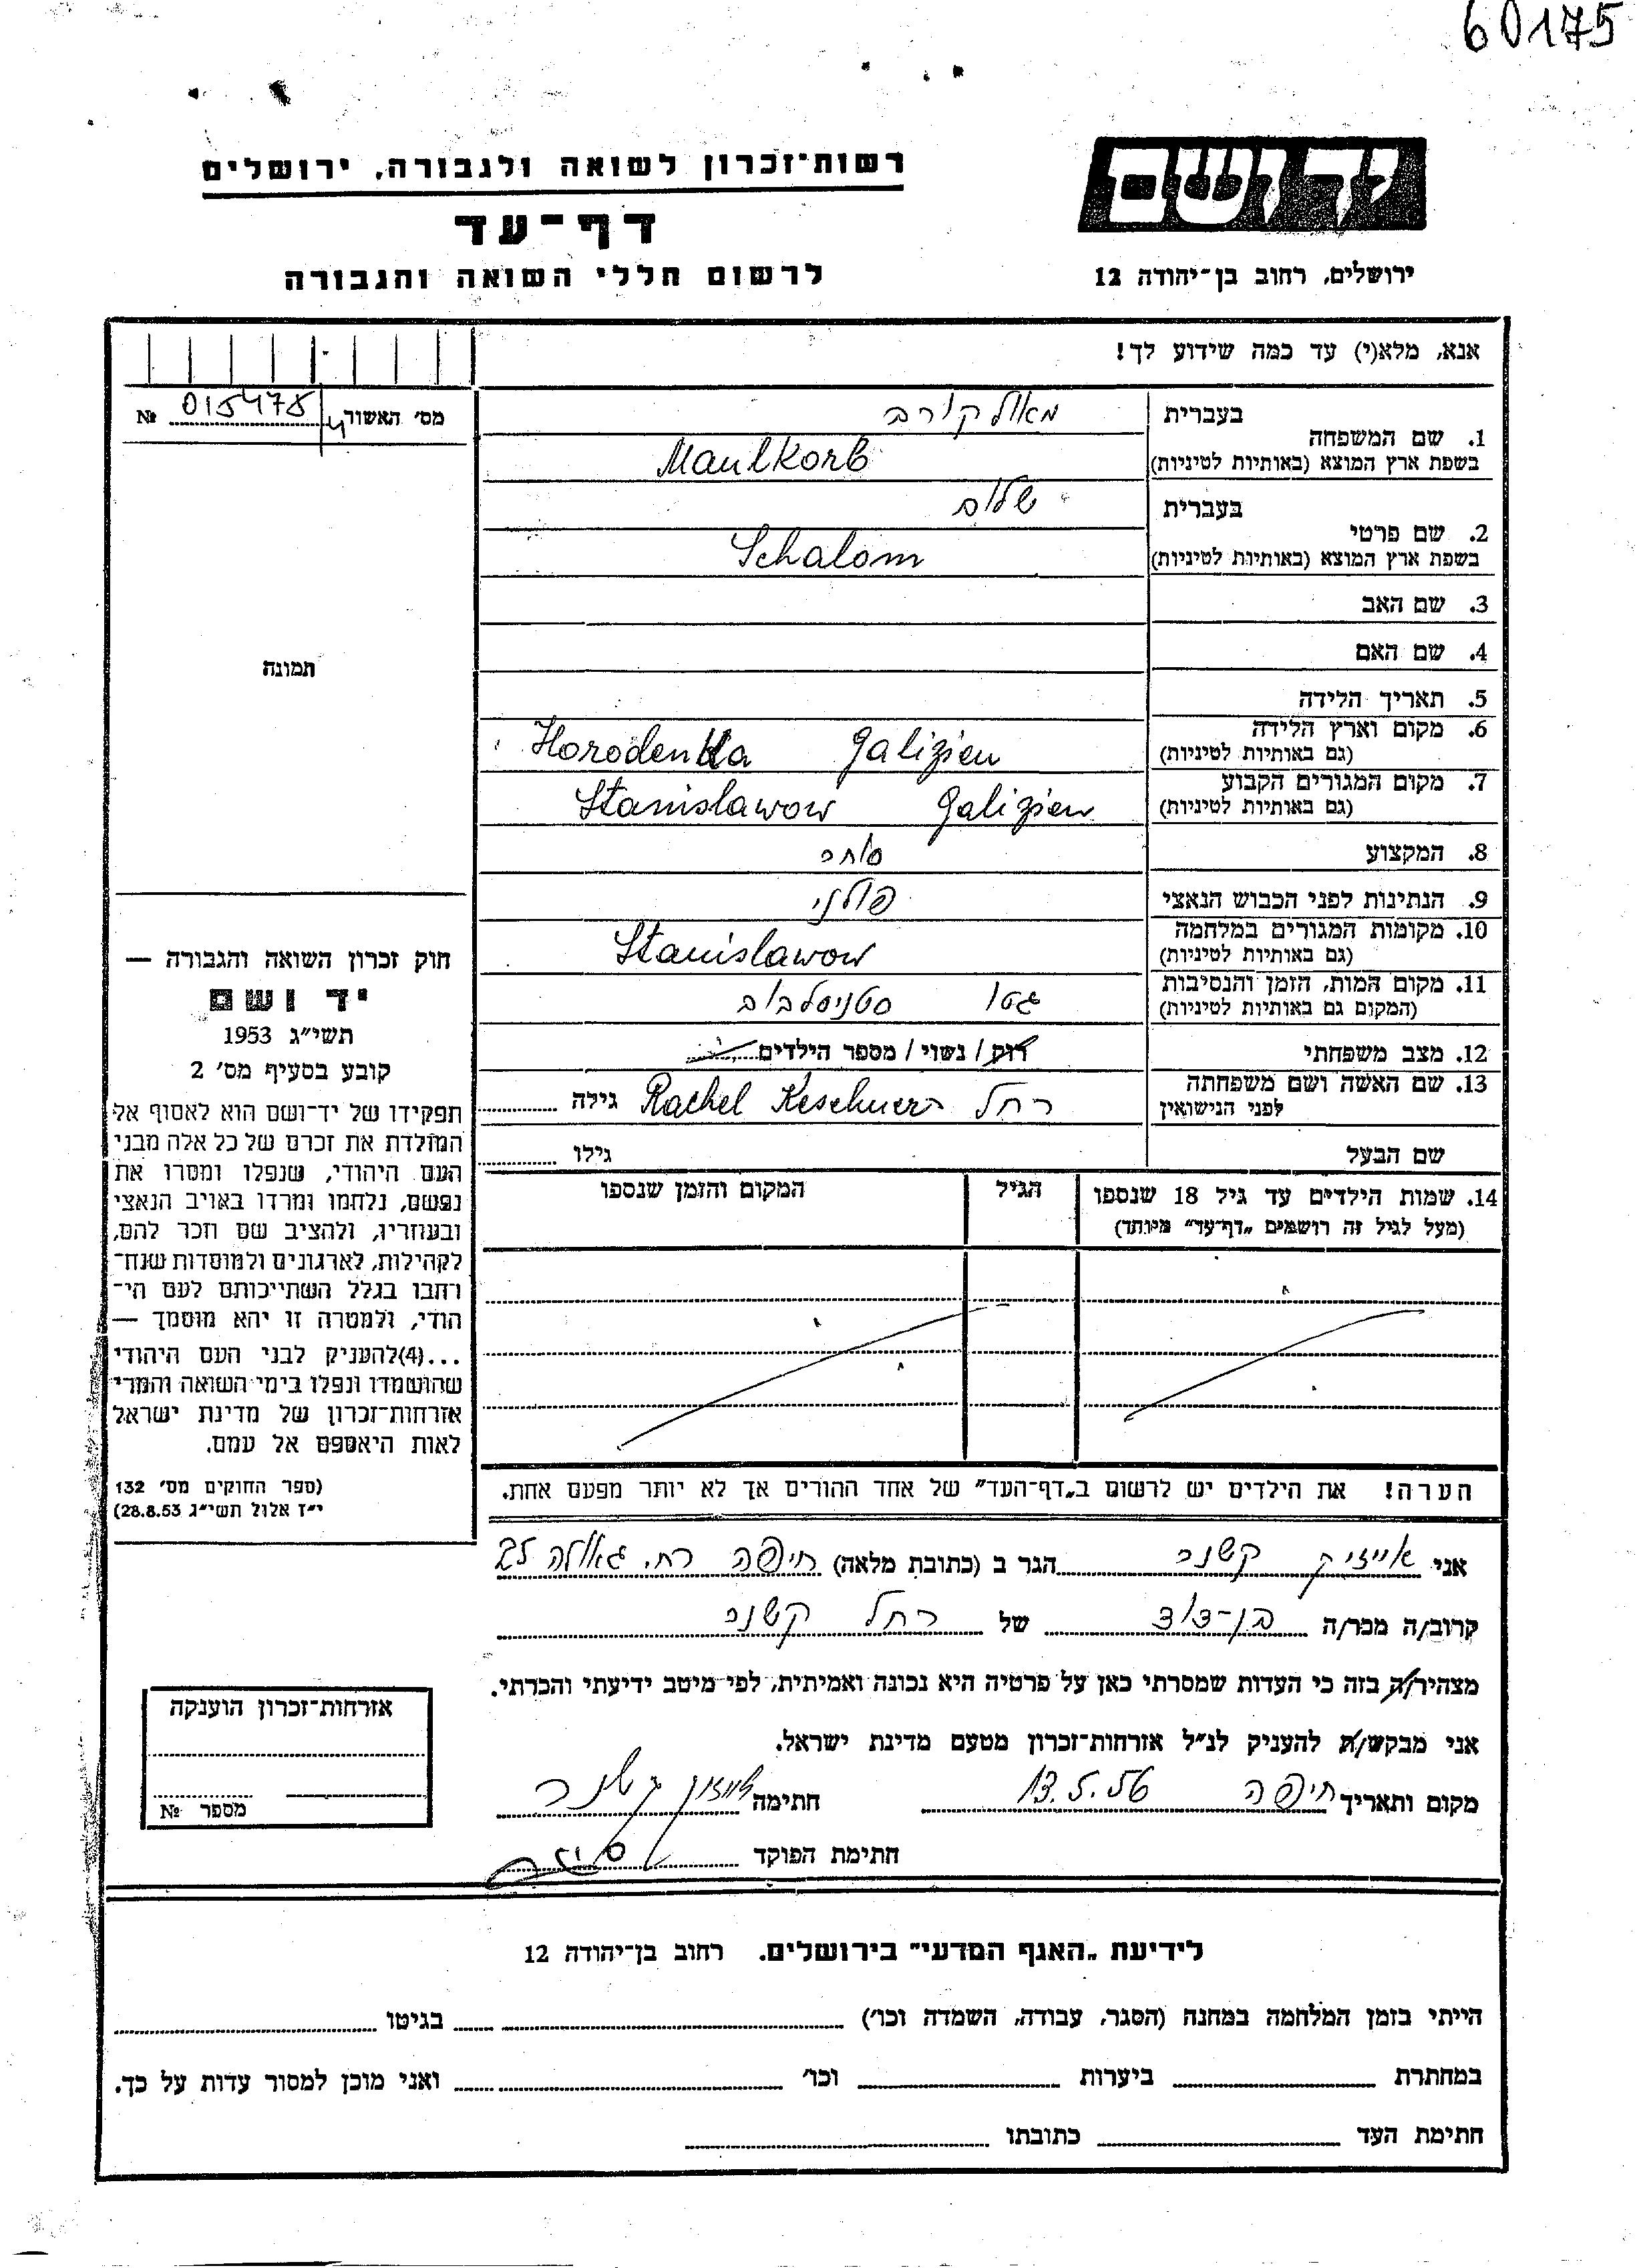 60175
יד ושם
ירושלים, רחוב בן־יהודה 12
רשות־זכרון לשואה ולגבורה, ירושלים
דף־עד
לרשום חללי השואה והגבורה
אנא, מלא(י) עד כמה שידוע לך!
מס׳ האשור № 015475
1. שם המשפחה בעברית מאולקורב
בשפת ארץ המוצא (באותיות לטיניות) Maulkorb
2. שם פרטי בעברית שלום
בשפת ארץ המוצא (באותיות לטיניות) Schalom
3. שם האב
4. שם האם
5. תאריך הלידה
6. מקום וארץ הלידה (גם באותיות לטיניות) Horodenka Galizien
7. מקום המגורים הקבוע (גם באותיות לטיניות) Stanislawow Galizien
8. המקצוע סוחר
9. הנתינות לפני הכבוש הנאצי פולני
10. מקומות המגורים במלחמה (גם באותיות לטיניות) Stanislawow
11. מקום המות, הזמן והנסיבות (המקום גם באותיות לטיניות) גטו סטניסלבוב
12. מצב משפחתי רוק / נשוי / מספר הילדים
13. שם האשה ושם משפחתה לפני הנישואין רחל Rachel Keschner גילה
שם הבעל גילו
14. שמות הילדים עד גיל 18 שנספו
(מעל לגיל זה רושמים „דף־עד״ מיוחד)
הגיל
המקום והזמן שנספו
הערה! את הילדים יש לרשום ב„דף־העד״ של אחד ההורים אך לא יותר מפעם אחת.
תמונה
חוק זכרון השואה והגבורה —
יד ושם
תשי״ג 1953
קובע בסעיף מס׳ 2
תפקידו של יד־ושם הוא לאסוף אל
המולדת את זכרם של כל אלה מבני
העם היהודי, שנפלו ומסרו את
נפשם, נלחמו ומרדו באויב הנאצי
ובעוזריו, ולהציב שם וזכר להם,
לקהילות, לארגונים ולמוסדות שנח־
רחבו בגלל השתייכותם לעם הי־
הודי, ולמטרה זו יהא מוסמך —
...(4)להעניק לבני העם היהודי
שהושמדו ונפלו בימי השואה והמרי
אזרחות־זכרון של מדינת ישראל
לאות היאספם אל עמם.
(ספר החוקים מס׳ 132
י״ז אלול תשי״ג 28.8.53)
אני אייזיק קשנר הגר ב (כתובת מלאה) חיפה רח. גאולה 25
קרוב/ה מכר/ה בן־דוד של רחל קשנר
מצהיר/ה בזה כי העדות שמסרתי כאן על פרטיה היא נכונה ואמיתית, לפי מיטב ידיעתי והכרתי.
אני מבקש/ת להעניק לנ״ל אזרחות־זכרון מטעם מדינת ישראל.
מקום ותאריך חיפה 13.5.56 חתימה אייזיק קשנר
חתימת הפוקד
אזרחות־זכרון הוענקה
מספר №
לידיעת „האגף המדעי״ בירושלים. רחוב בן־יהודה 12
הייתי בזמן המלחמה במחנה (הסגר, עבודה, השמדה וכו׳) בגיטו
במחתרת ביערות וכו׳ ואני מוכן למסור עדות על כך.
חתימת העד כתובתו